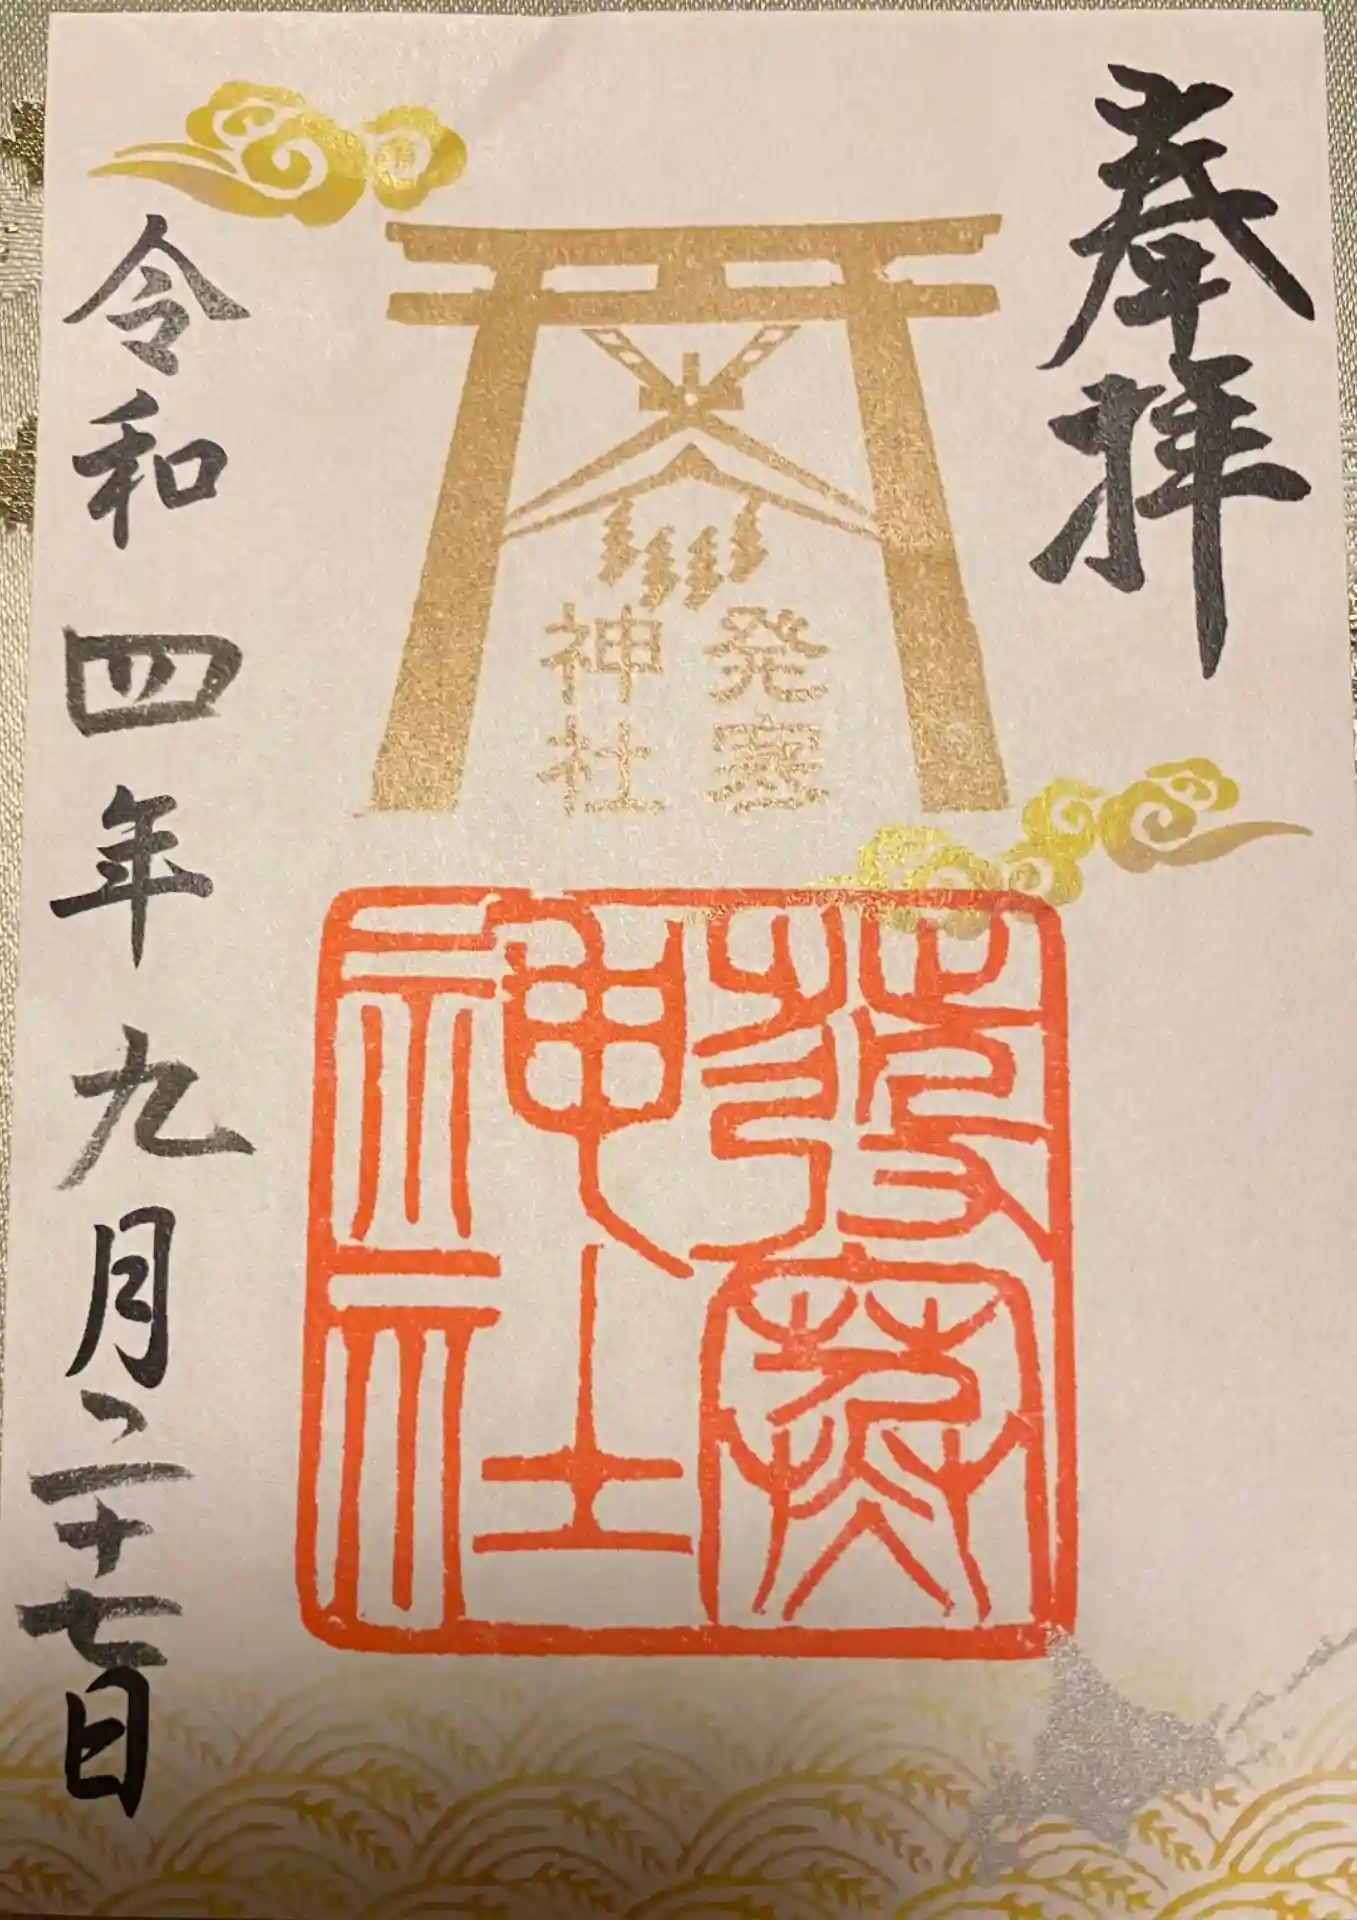 奉拝
発寒
神社
発寒
神社
令和四年九月二十七日